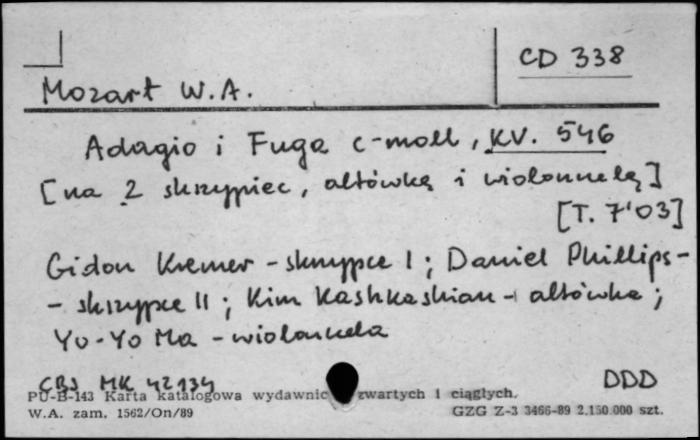 CD 338
Mozart W.A.
Adagio i Fuga c-moll, KV. 546
[na 2 skrzypiec, altówkę i wiolonczelę]
[T. 7'03]
Gidon Kremer - skrzypce I; Daniel Phillips-
- skrzypce II; Kim Kashkashian - altówka;
Yo-Yo Ma - wiolonczela
CBS MK 42134 DDD
PU-B-143 Karta katalogowa wydawnic zwartych i ciągłych.
W.A. zam. 1562/On/89 GZG Z-3 3466-89 2.150.000 szt.